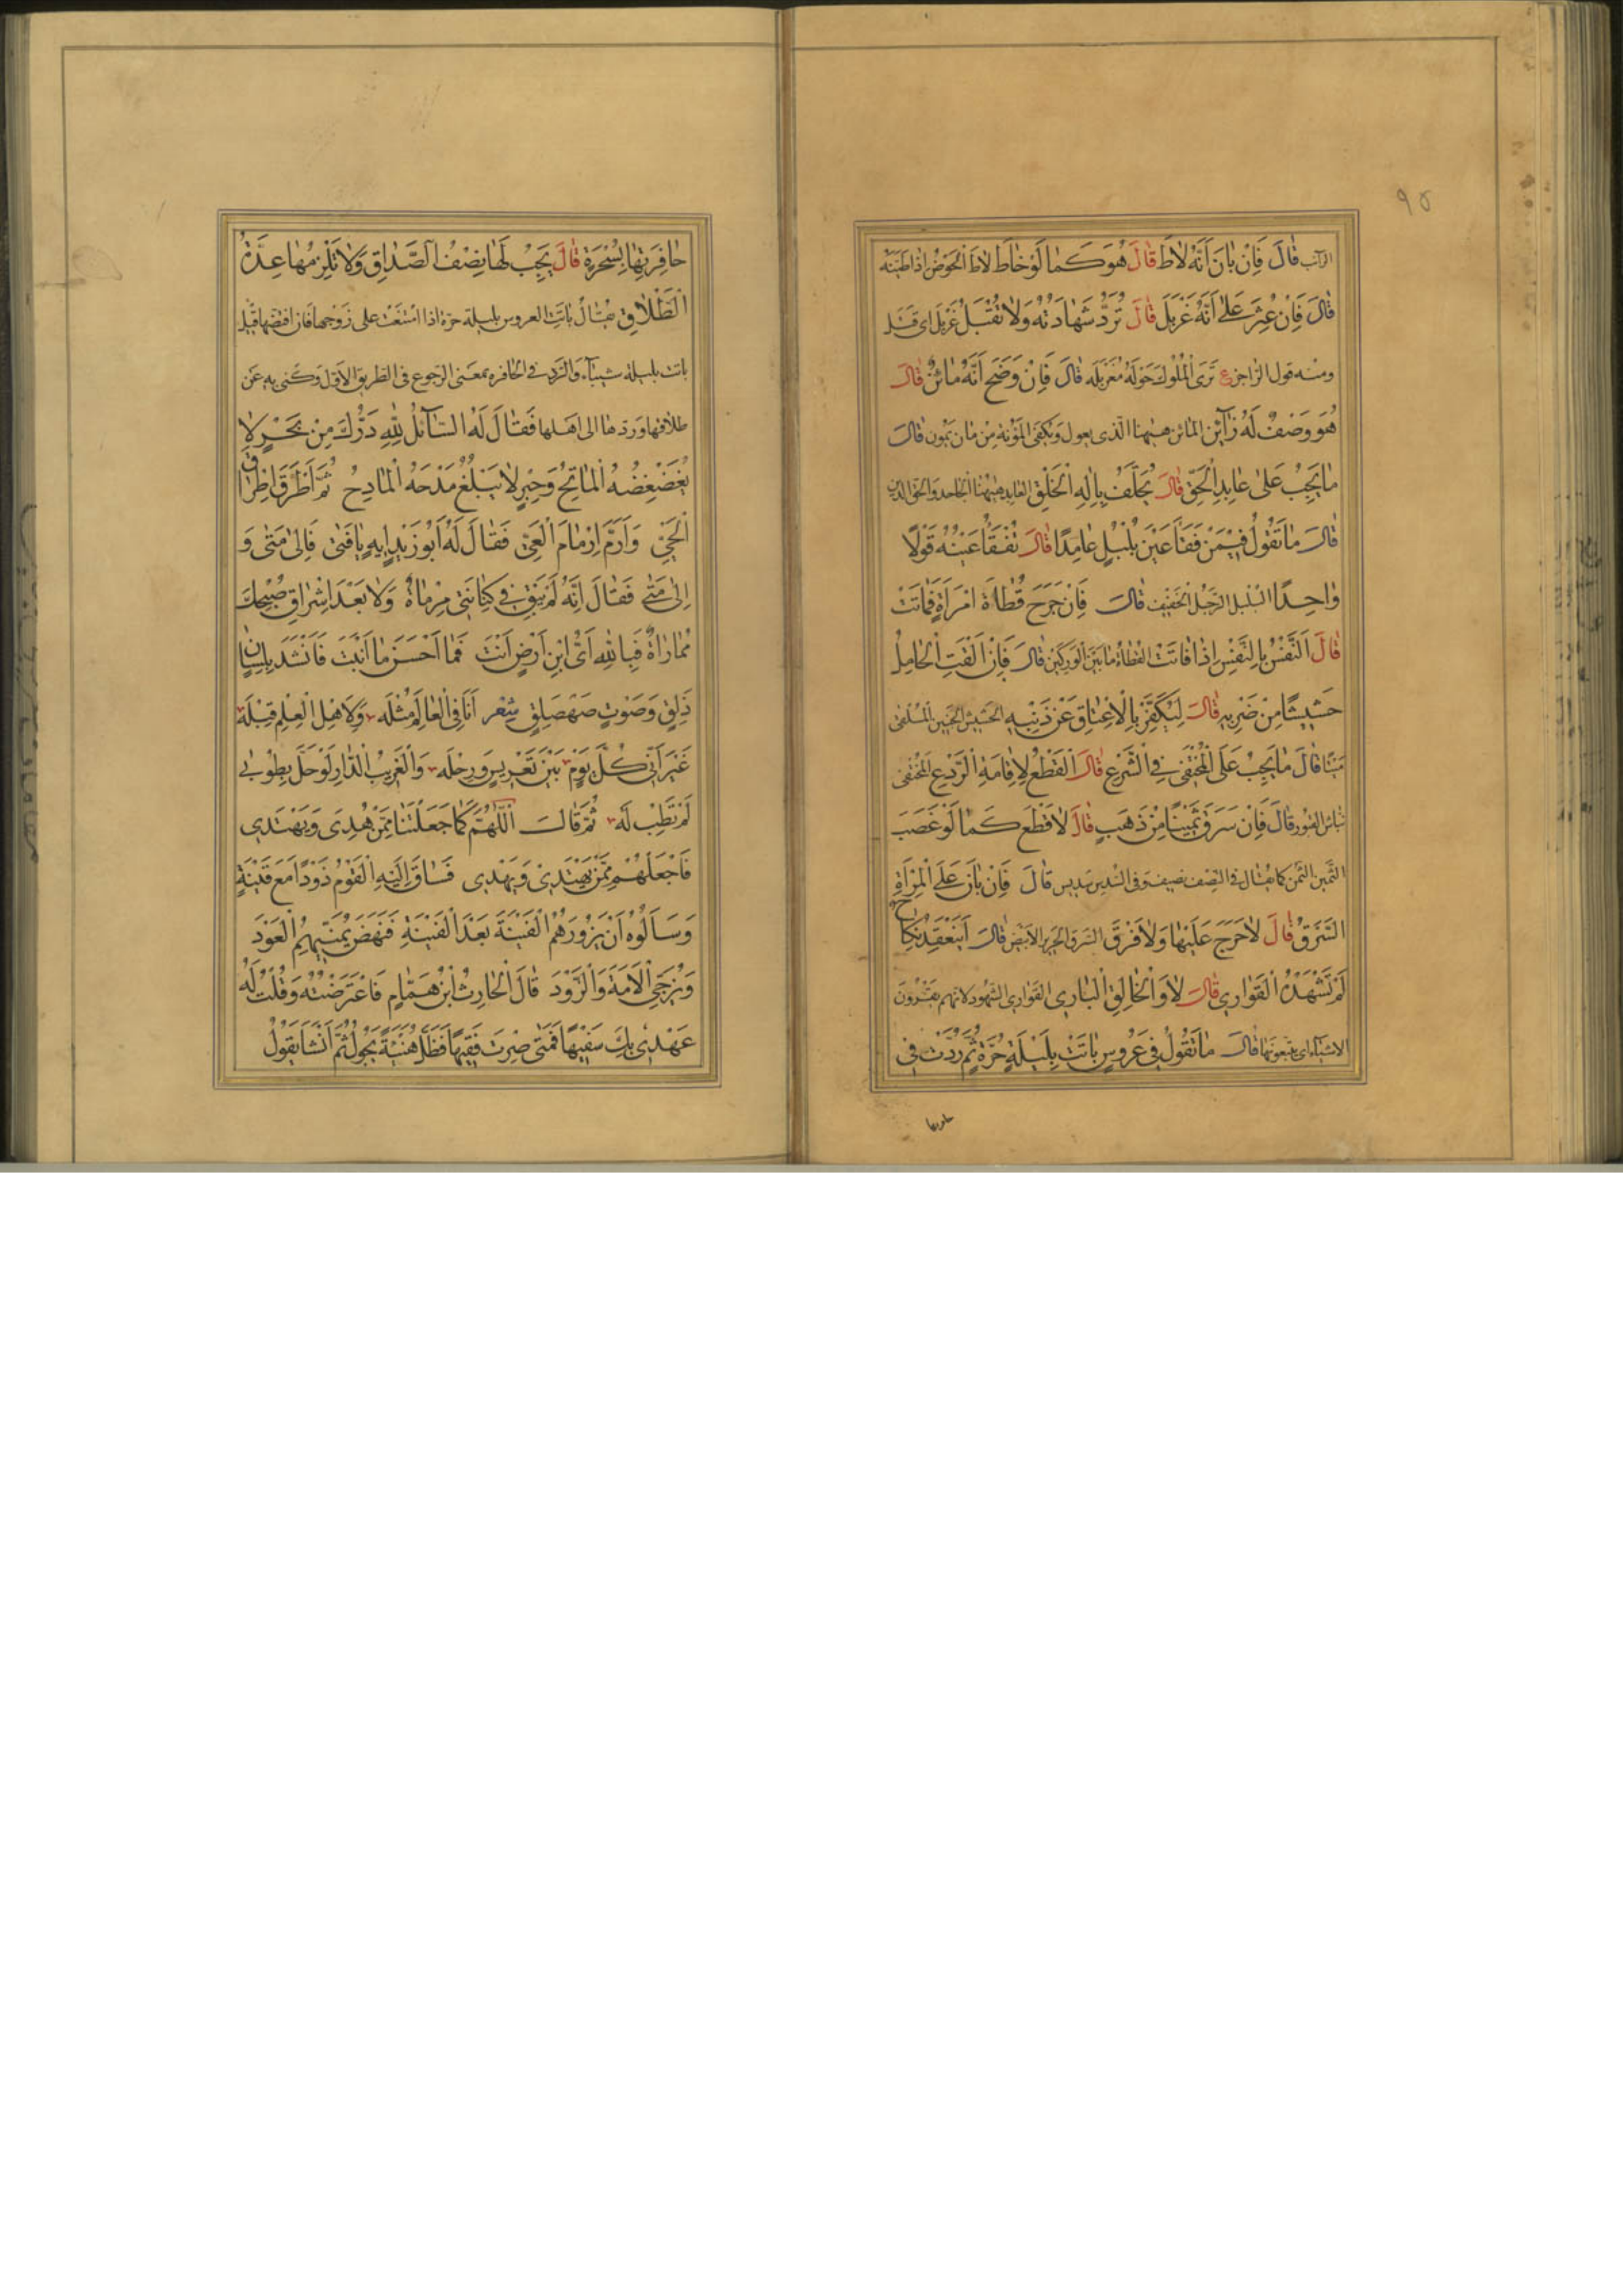 ٩٥
الرائب قَالَ فَاِنْ بٰانَ اَنَّهُ لٰاطَ قٰالَ هُوَ كَمٰا لَوْ خٰاطَ لاطَ الْحَوْضَ اِذا طَيَّنَهُ
قٰالَ فَاِنْ عُثِرَ عَلىٰ اَنَّهُ غَرْبَلَ قٰالَ تُرَدُّ شَهٰادَتُهُ وَلٰا تُقْبَلُ غَرْبَلَ اى قَتَلَ
ومنه قول الراجز ع تَرَى الْمُلُوكَ حَوْلَهُ مُغَرْبَلَه قٰالَ فَاِنْ وَضَحَ اَنَّهُ مٰائِنٌ قٰالَ
هُوَ وَصْفٌ لَهُ زٰائِن المائن ههنا الّذى يعول ويكفى المؤنة مِنْ مٰان يَمُون قٰالَ
مٰا يَجِبُ عَلىٰ عٰابِدِ الْحَقِّ قٰالَ يُحَلَّفُ بِاِلٰهِ الْخَلْقِ العابد ههنا الجاحد والحق الدين
قٰالَ مٰا تَقُولُ فِيْمَنْ فَقَأَ عَيْنَ بُلْبُلٍ عٰامِدًا قٰالَ تُفْقَأُ عَيْنُهُ قَوْلًا
وٰاحِدًا البلبل الرَّجُل الخفيف قٰالَ فَاِنْ جَرَحَ قَطٰاةَ امْرَاَةٍ فَمٰاتَتْ
قٰالَ اَلنَّفْسُ بِالنَّفْسِ اِذٰا فٰاتَتْ القطاة ما بَيْنَ الوركين قٰالَ فَاِنْ اَلْقَتِ الْحٰامِلُ
حَشِيْشًا مِنْ ضَرْبِهِ قٰالَ لِيُكَفِّرْ بِالْاِعْتٰاقِ عَنْ ذَنْبِهِ الحشيش الجنين الملقى
مَيْتًا قٰالَ مٰا يَجِبُ عَلَى الْمُخْتَفِى فِى الشَّرْعِ قٰالَ الْقَطْعُ لِاِقٰامَةِ الرَّدْعِ المختفى
نبّاش القبور قٰالَ فَاِنْ سَرَقَ ثَمِيْنًا مِنْ ذَهَبٍ قٰالَ لٰا قَطْعَ كَمٰا لَوْ غَصَبَ
الثمين الثّمن كما يقال فى النصف نصيف وفى السّدس سديس قٰالَ فَاِنْ بٰانَ عَلَى الْمَرْاَةِ
السَّرَقُ قٰالَ لٰا حَرَجَ عَلَيْهٰا وَلٰا فَرَقَ السرق الحرير الابيض قٰالَ اَيَنْعَقِدُ نِكٰاحٌ
لَمْ تَشْهَدْهُ الْقَوٰارِى قٰالَ لٰا وَالْخٰالِقِ الْبٰارِى القوارى الشّهود لانهم يقرون
الاشياء اى يتبعونها قٰالَ مٰا تَقُولُ فِى عَرُوسٍ بٰاتَتْ بِلَيْلَةٍ حُرَّةٍ ثُمَّ رُدَّتْ فِى
حافرتها
حٰافِرَتِهٰا بِسُحْرَةٍ قٰالَ يَجِبُ لَهٰا نِصْفُ الصَّدٰاقِ وَلٰا تَلْزَمُهٰا عِدَّةُ
الْطَّلٰاقِ يقال باتت العروس بليلة حرّة اذا امتنعت على زَوْجها فان افتضّها قيل
باتت بليلة شيباء والردّ فى الحافرة بمعنى الرجوع فى الطريق الاول وكنى به عن
طلاقها وردها الى اهلها فَقٰالَ لَهُ السّٰائِلُ لِلّٰهِ دَرُّكَ مِنْ بَحْرٍ لٰا
يُغَضْغِضُهُ الْمٰاتِحُ وَحِبْرٍ لٰا يَبْلُغُ مَدْحَهُ الْمٰادِحُ ثُمَّ اَطْرَقَ اِطْرٰاقَ
الْحَيِىِّ وَاَرَمَّ اِرْمٰامَ الْعَيِىِّ فَقٰالَ لَهُ اَبُو زَيْدٍ اِيهِ يٰا فَتٰى فَاِلىٰ مَتٰى وَ
اِلىٰ مَتٰى فَقٰالَ اِنَّهُ لَمْ يَبْقَ فِى كِنٰانَتِى مِرْمٰاةٌ وَلٰا بَعْدَ اِشْرٰاقِ صُبْحِكَ
مُمٰارٰاةٌ فَبِاللّٰهِ اَىُّ ابْنِ اَرْضٍ اَنْتَ فَمٰا اَحْسَنَ مٰا اَبَنْتَ فَاَنْشَدَ بِلِسٰانٍ
ذَلِقٍ وَصَوْتٍ صَهْصَلِقٍ شعر اَنَا فِى الْعٰالَمِ مُثْلَه وَلِاَهْلِ الْعِلْمِ قِبْلَه
غَيْرَ اَنِّى كُلَّ يَوْمٍ بَيْنَ تَعْرِيسٍ وَرِحْلَه وَالْغَرِيبُ الدّٰارِ لَوْ حَلَّ بِطُوبٰى
لَمْ تَطِبْ لَه ثُمَّ قٰالَ اَللّٰهُمَّ كَمٰا جَعَلْتَنٰا مِمَّنْ هُدِىَ وَيَهْتَدِى
فَاجْعَلْهُمْ مِمَّنْ يَهْتَدِى وَيَهْدِى فَسٰاقَ اِلَيْهِ الْقَوْمُ ذَوْدًا مَعَ قَيْنَةٍ
وَسَاَلُوهُ اَنْ يَزُورَهُمُ الْفَيْنَةَ بَعْدَ الْفَيْنَةِ فَنَهَضَ يُمَنِّيهِمُ الْعَوْدَ
وَيُزَجِّى الْاَمَةَ وَالذَّوْدَ قٰالَ الْحٰارِثُ ابْنُ هَمّٰامٍ فَاعْتَرَضْتُهُ وَقُلْتُ لَهُ
عَهْدِى بِكَ سَفِيْهًا فَمَتٰى صِرْتَ فَقِيْهًا فَظَلَّ هُنَيْئَةً يَجُولُ ثُمَّ اَنْشَاَ يَقُولُ